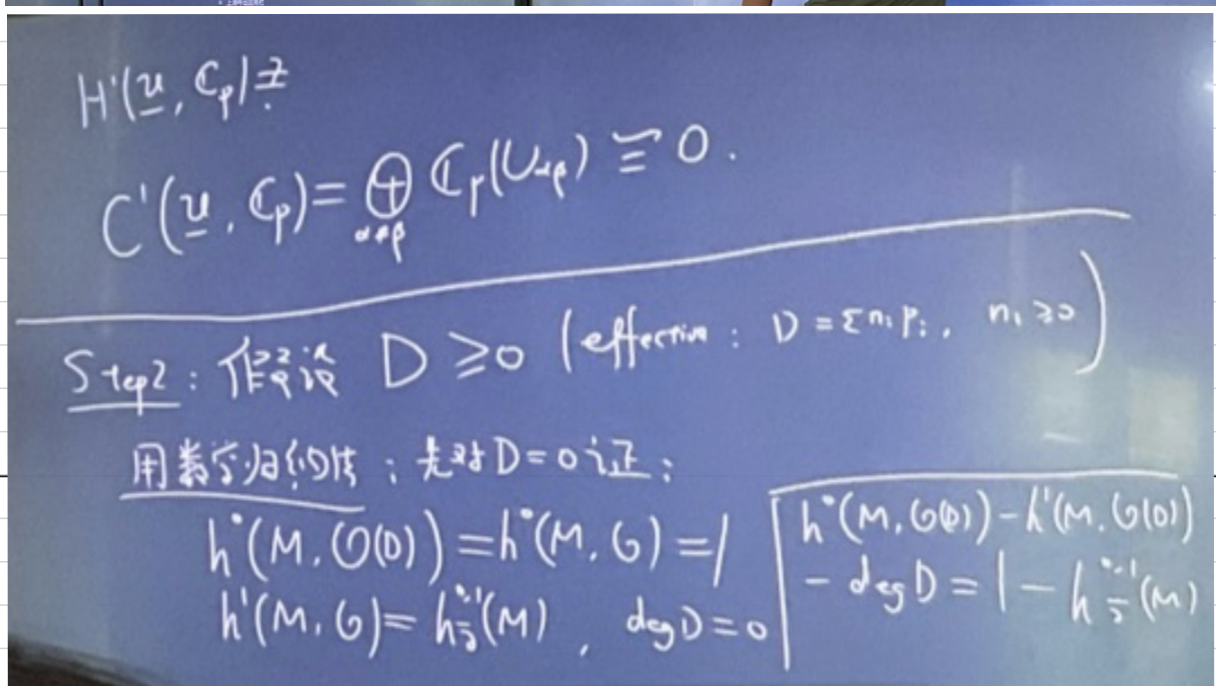 H¹(𝔘, ℂₚ) ≟
C¹(𝔘, ℂₚ) = ⊕_{α≠β} ℂₚ(U_{αβ}) ≅ 0.
Step2: 假设 D ≥ 0 (effective: D = Σ nᵢ pᵢ, nᵢ ≥ 0)
用数学归纳法; 先对 D = 0 证:
h⁰(M, O(D)) = h⁰(M, O) = 1
h¹(M, O) = h^{0,1}_{∂̄}(M), deg D = 0
h⁰(M, O(D)) - h¹(M, O(D))
- deg D = 1 - h^{0,1}_{∂̄}(M)